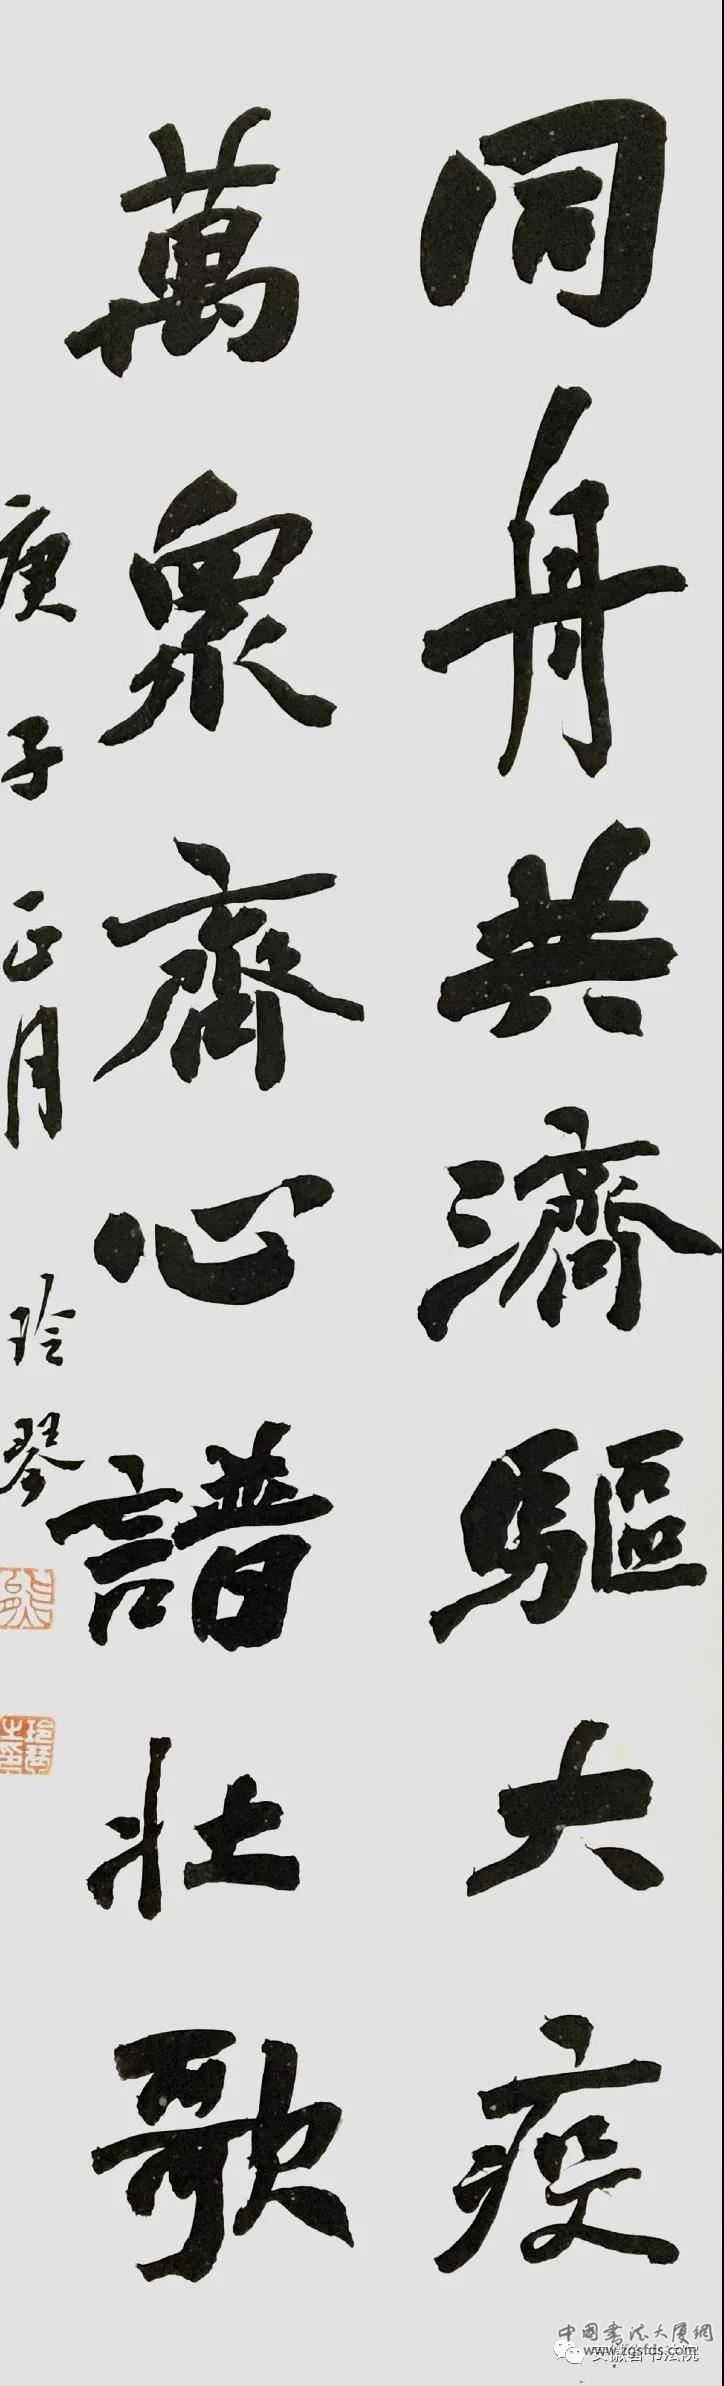 同舟共濟驅大疫
萬眾齊心譜壯歌
庚子正月 玲琴
玲琴之印
中国书法大厦網
www.zgsfds.com
安徽省书法院